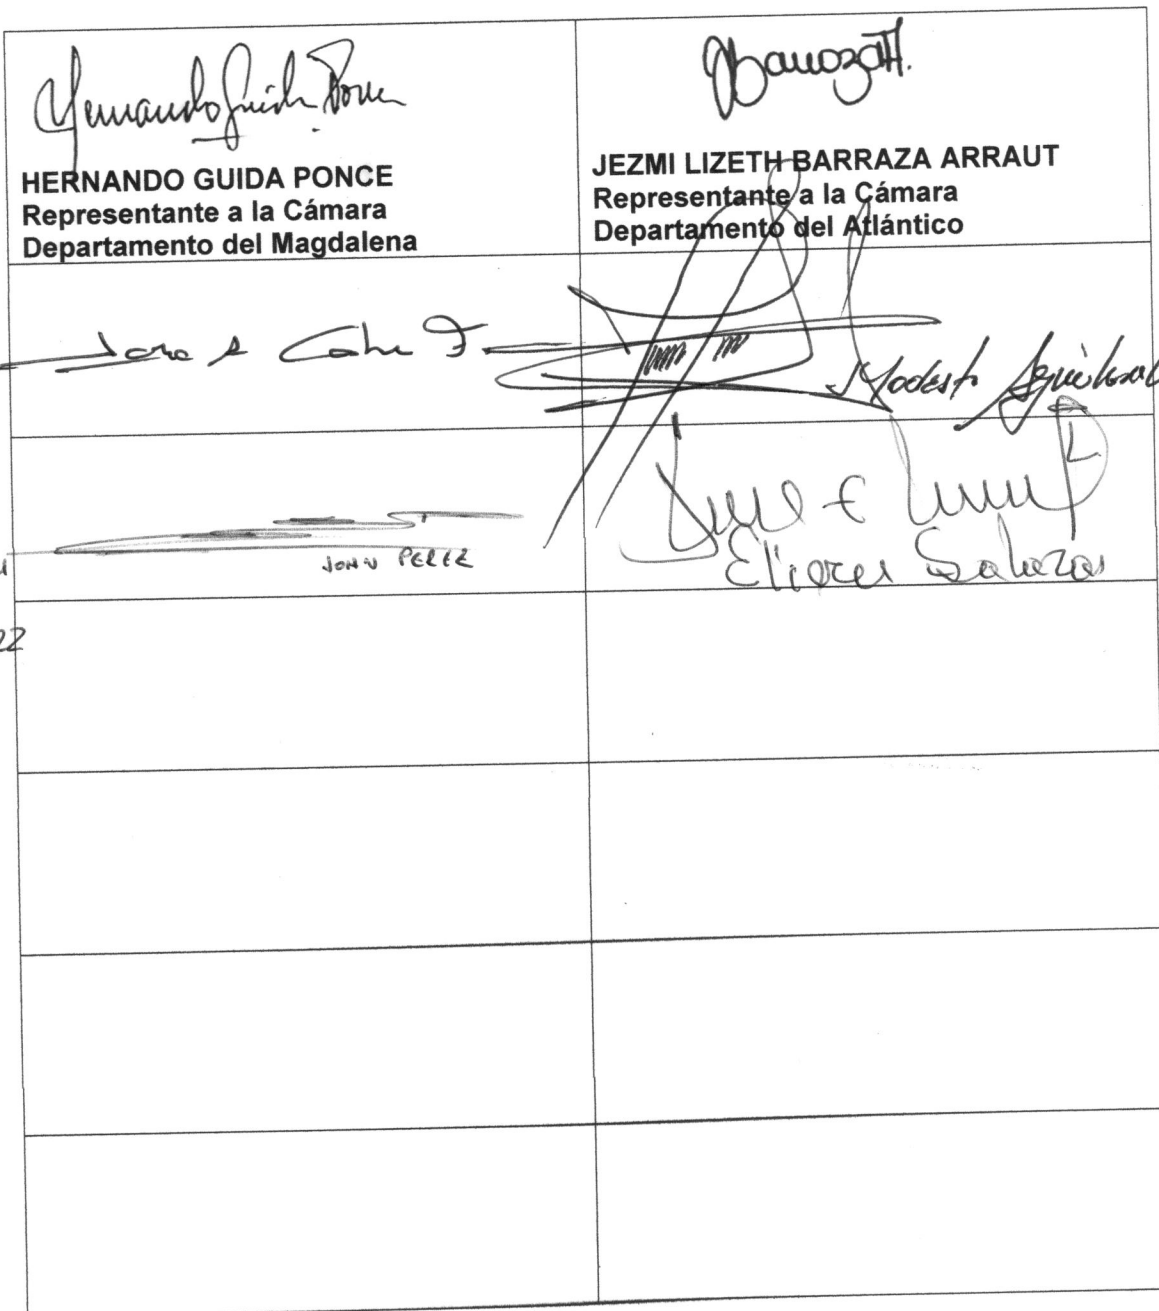 Hernando Guida Ponce
HERNANDO GUIDA PONCE
Representante a la Cámara
Departamento del Magdalena
JBarrazaA.
JEZMI LIZETH BARRAZA ARRAUT
Representante a la Cámara
Departamento del Atlántico
Modesto Aguilera
JOHN PEREZ
Eliecer Salazar
22